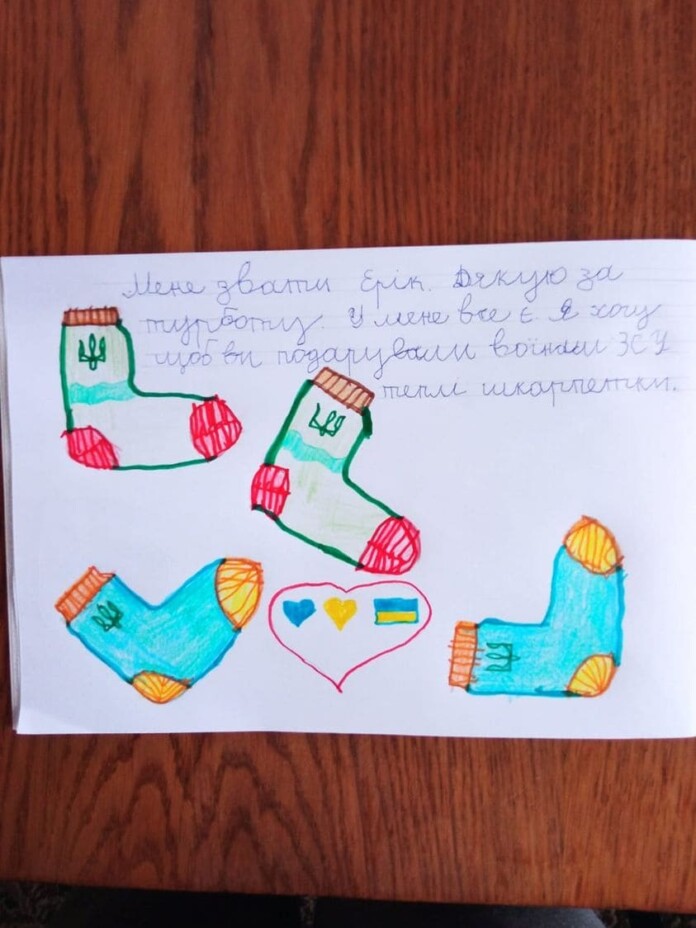 Мене звати Ерік. Дякую за
турботу. У мене все є. Я хочу
щоб ви подарували воїнам ЗСУ
теплі шкарпетки.